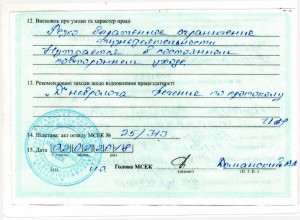 12. Висновок про умови та характер праці
Резко выраженное ограничение
жизнедеятельности
Нуждается в постоянном
постороннем уходе.
13. Рекомендовані заходи щодо відновлення працездатності
"Д" невролога Лечение по протоколу
14. Підстава: акт огляду МСЕК № 25/
15. Дата
М.П. Голова МСЕК
(П.І.Б.)